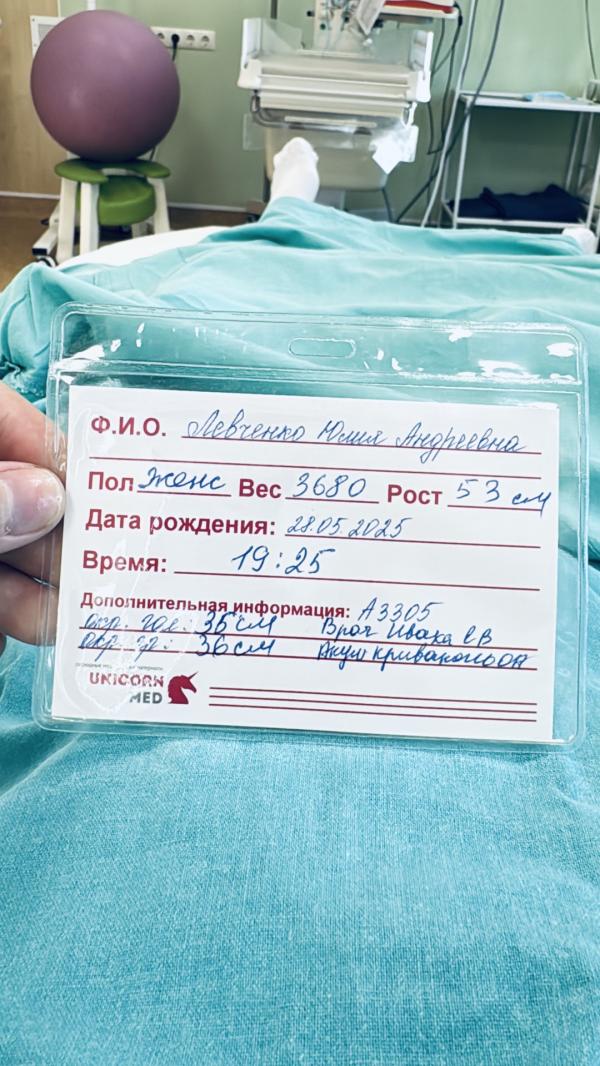 Ф.И.О. Левченко Юлия Андреевна
Пол женс Вес 3680 Рост 53 см
Дата рождения: 28.05.2025
Время: 19:25
Дополнительная информация: А3305
окр. гол: 36 см Врач Ивака ЕВ
окр. гр: 36 см Акуш
UNICORN
MED